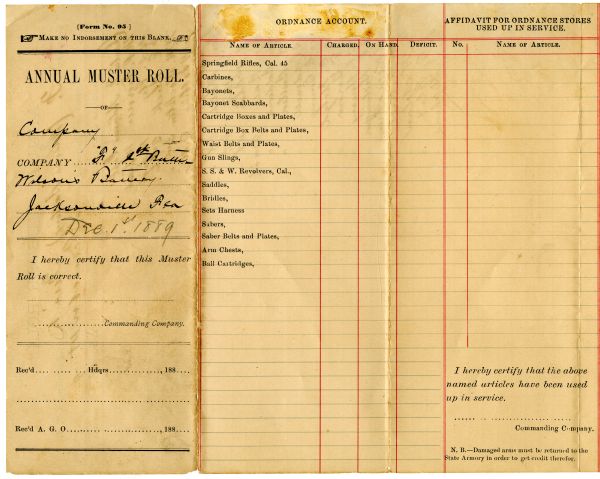 (Form No. 95)
MAKE NO INDORSEMENT ON THIS BLANK.
ANNUAL MUSTER ROLL.
—OF—
Company
COMPANY
Wilson's Battery
Jacksonville Fla
Dec. 1st 1889
I hereby certify that this Muster
Roll is correct.
Commanding Company.
Rec'd Hdqrs 188
Rec'd A. G. O 188
ORDNANCE ACCOUNT.
NAME OF ARTICLE. CHARGED. ON HAND. DEFICIT.
Springfield Rifles, Cal. 45
Carbines,
Bayonets,
Bayonet Scabbards,
Cartridge Boxes and Plates,
Cartridge Box Belts and Plates,
Waist Belts and Plates,
Gun Slings,
S. S. & W. Revolvers, Cal.,
Saddles,
Bridles,
Sets Harness
Sabers,
Saber Belts and Plates,
Arm Chests,
Ball Cartridges,
AFFIDAVIT FOR ORDNANCE STORES
USED UP IN SERVICE.
NO. NAME OF ARTICLE.
I hereby certify that the above
named articles have been used
up in service.
Commanding Company.
N. B.—Damaged arms must be returned to the
State Armory in order to get credit therefor.